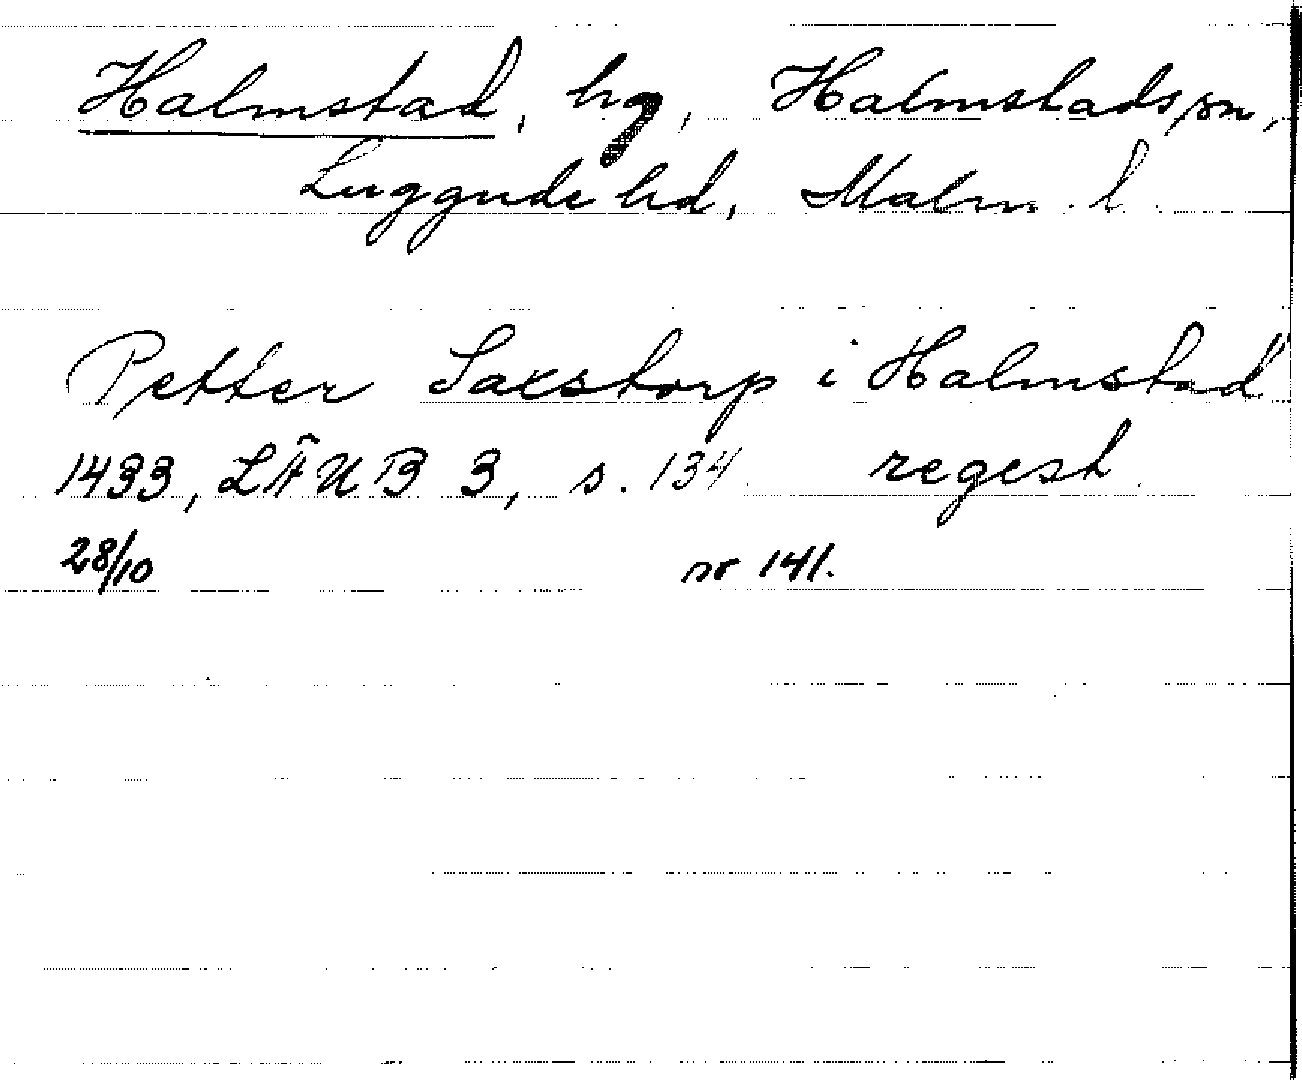 Halmstad, hg, Halmstads sn,
Luggude hd, Malm. l.
Petter Saxstorp i Halmstad
1433, LÄUB 3, s. 134. regest.
28/10 nr 141.